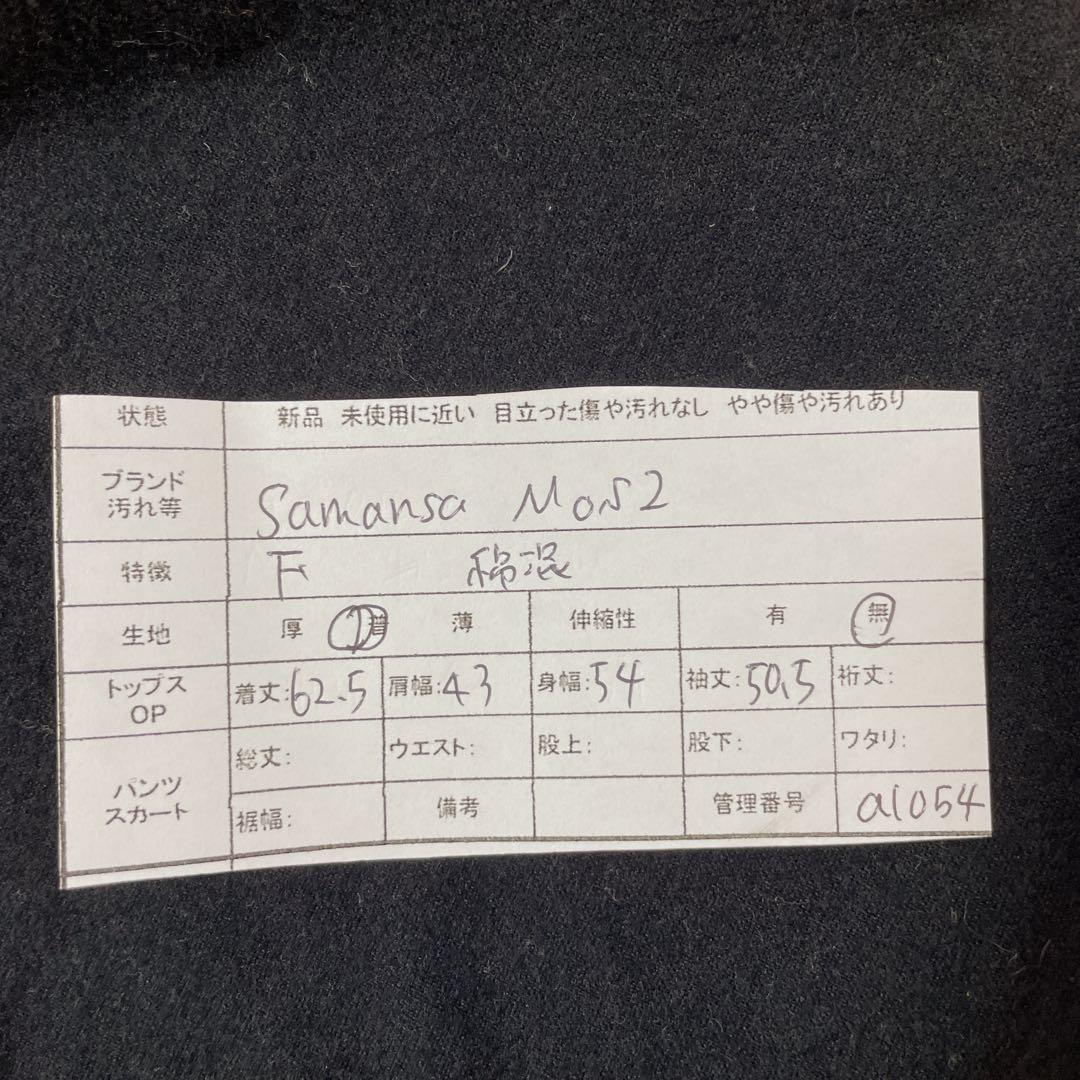 状態 新品 未使用に近い 目立った傷や汚れなし やや傷や汚れあり
ブランド
汚れ等 Samansa Mos2
特徴 F 綿混
生地 厚 普 薄 伸縮性 有 無
トップス
OP 着丈:62.5 肩幅:43 身幅:54 袖丈:50.5 裄丈:
パンツ
スカート 総丈: ウエスト: 股上: 股下: ワタリ:
裾幅: 備考 管理番号 a1054